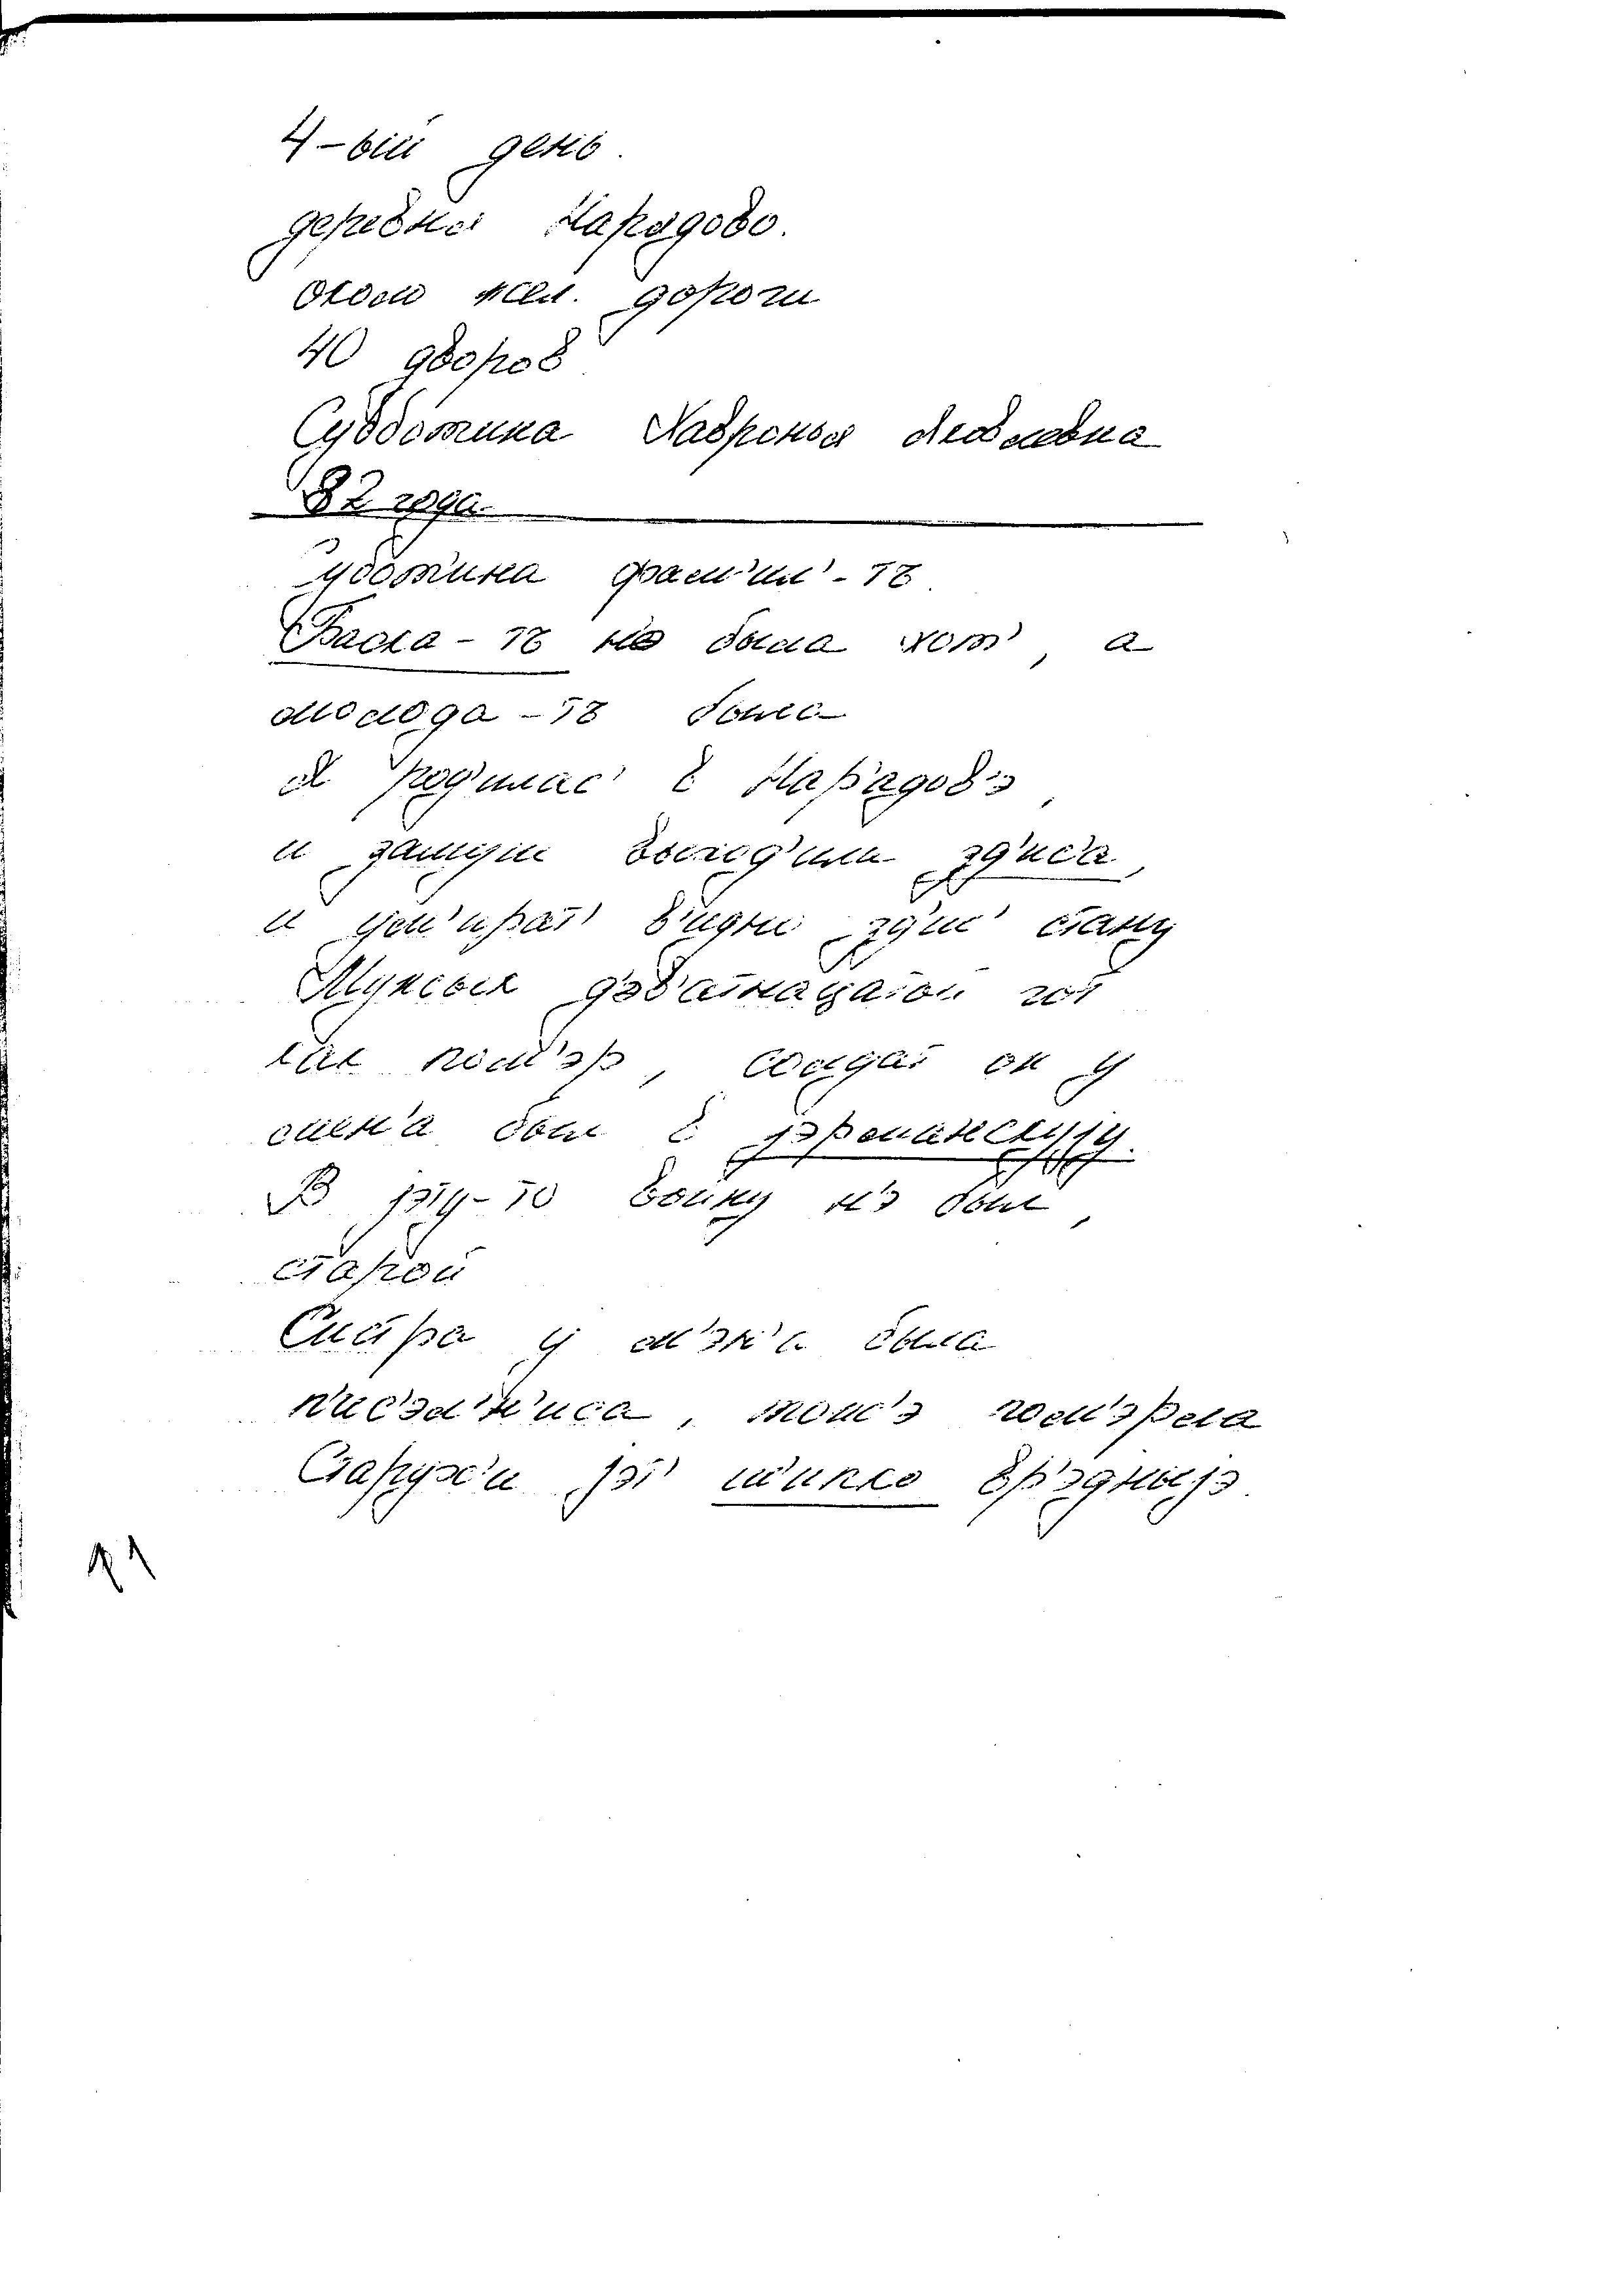 4-ый день.
деревня Нарядово.
Около жел. дороги
40 дворов
Субботина Хавронья Яковлевна
82 года.
Субот'ина фам'ил'-то
Баска-то не была хот', а
молода-то была
Я род'илас' в Нар'адов'э,
и замуш выход'ила зд'иса,
и ум'ират' в'идно зд'ис' стану
Мужык д'эв'атнацатой гот
как пом'эр, солдат он у
мен'а был в јэрманскују.
В јэту-то войну н'э был,
старой
Сн'ашра у м'эн'а была
пл'эм'ан'ица, тожэ пом'эрла
Старухи јэт' шыпко вр'эдныјэ.